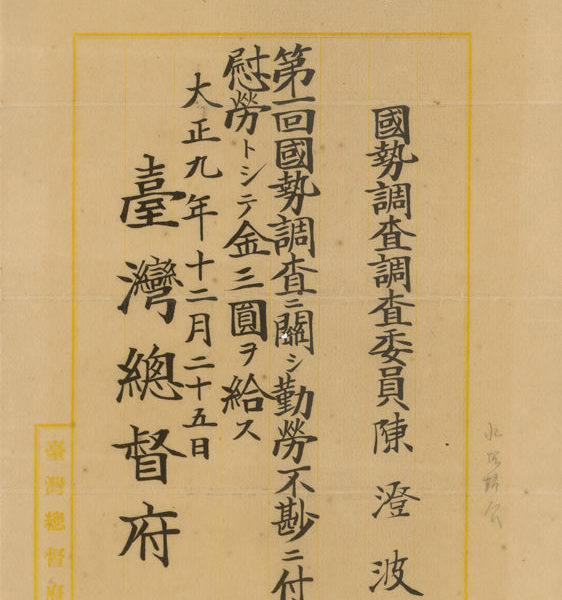 國勢調査調査委員陳澄波
第一回國勢調査ニ關シ勤勞不尠ニ付
慰勞トシテ金三圓ヲ給ス
大正九年十二月二十五日
臺灣總督府
臺灣總督府